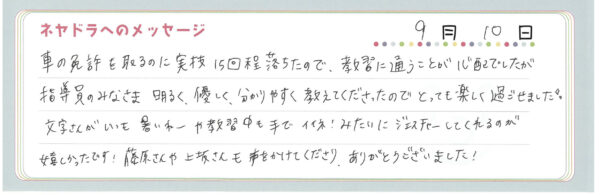 ネヤドラへのメッセージ
9月10日
車の免許を取るのに実技15回程落ちたので、教習に通うことが心配でしたが
指導員のみなさま 明るく、優しく、分かりやすく教えてくださったのでとっても楽しく過ごせました。
文字さんがいも 暑いねーや教習中も手でイイネ!みたいにジェスチャーしてくれるのが
嬉しかったです!藤原さんや上坂さんも声をかけてくださり、ありがとうございました!